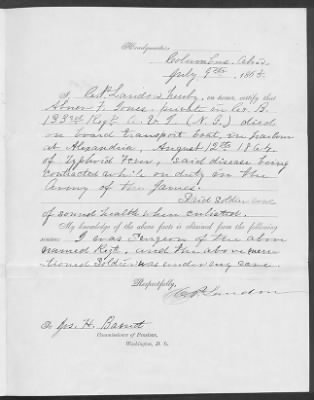 Headquarters
Columbus, Ohio,
July 9th, 1865.
I, C. P. Landon, hereby, on honor, certify that
Abner F. Jones, private in Co. B.
133rd Regt. O. V. I. (N. G.) died
on board transport boat, in harbor
at Alexandria, August 12th 1864,
of Typhoid Fever, said disease being
contracted while on duty in the
Army of the James.
Said soldier was
of sound health when enlisted.
My knowledge of the above facts is obtained from the following
sources: I was Surgeon of the above
named Regt. and the above men-
tioned Soldier was under my care.
Respectfully,
C. P. Landon
To Jos. H. Barrett
Commissioner of Pensions,
Washington, D. C.